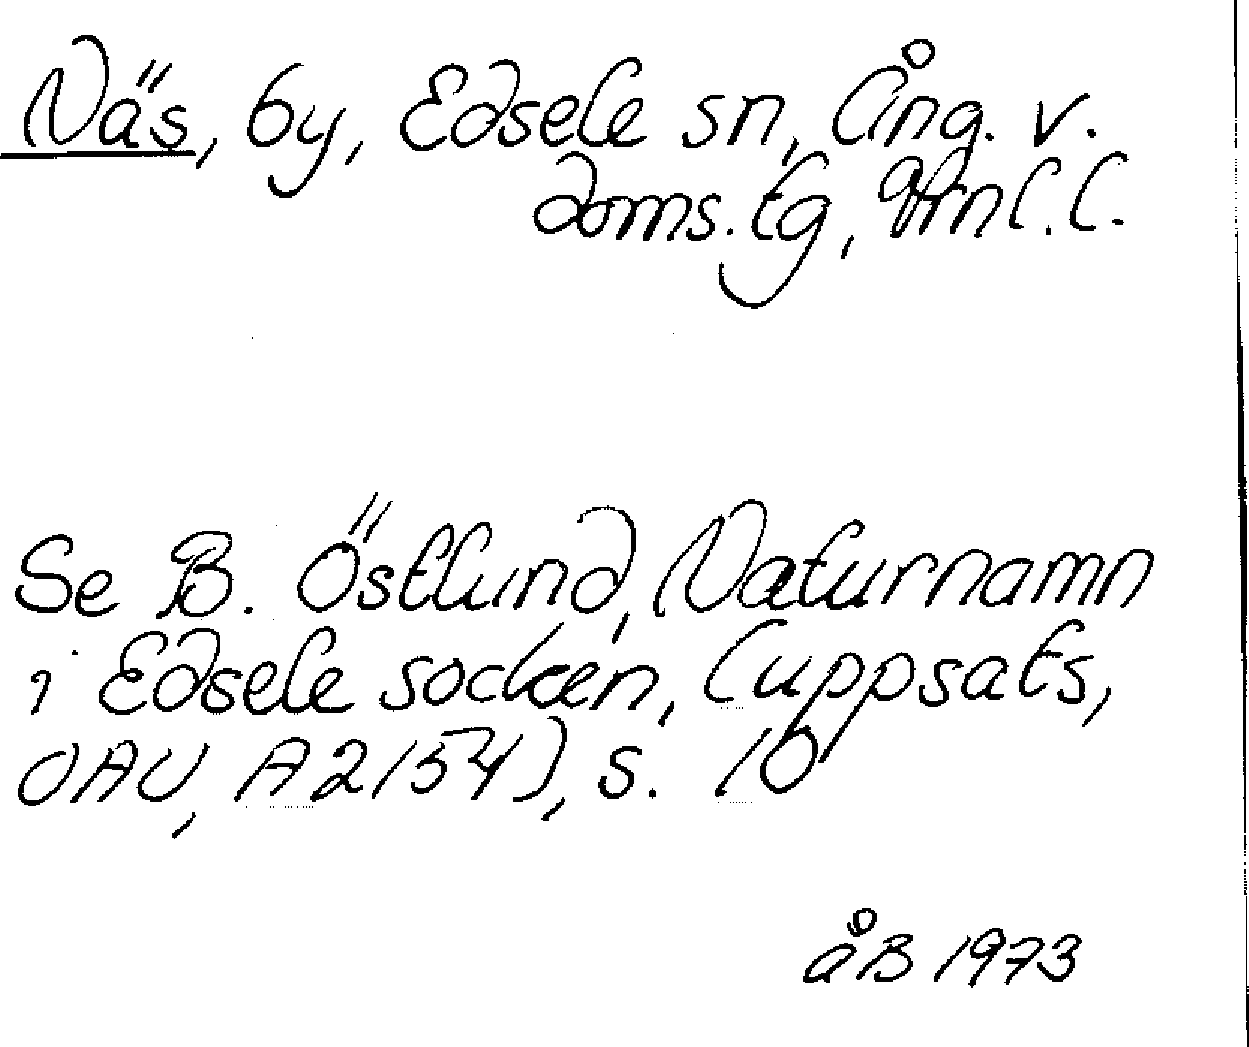 Näs, by, Edsele sn, Ång. v.
doms.tg, Vrnl.l.
Se B. Östlund, Naturnamn
i Edsele socken, (uppsats,
OAU, A2154), s. 10
åB 1973